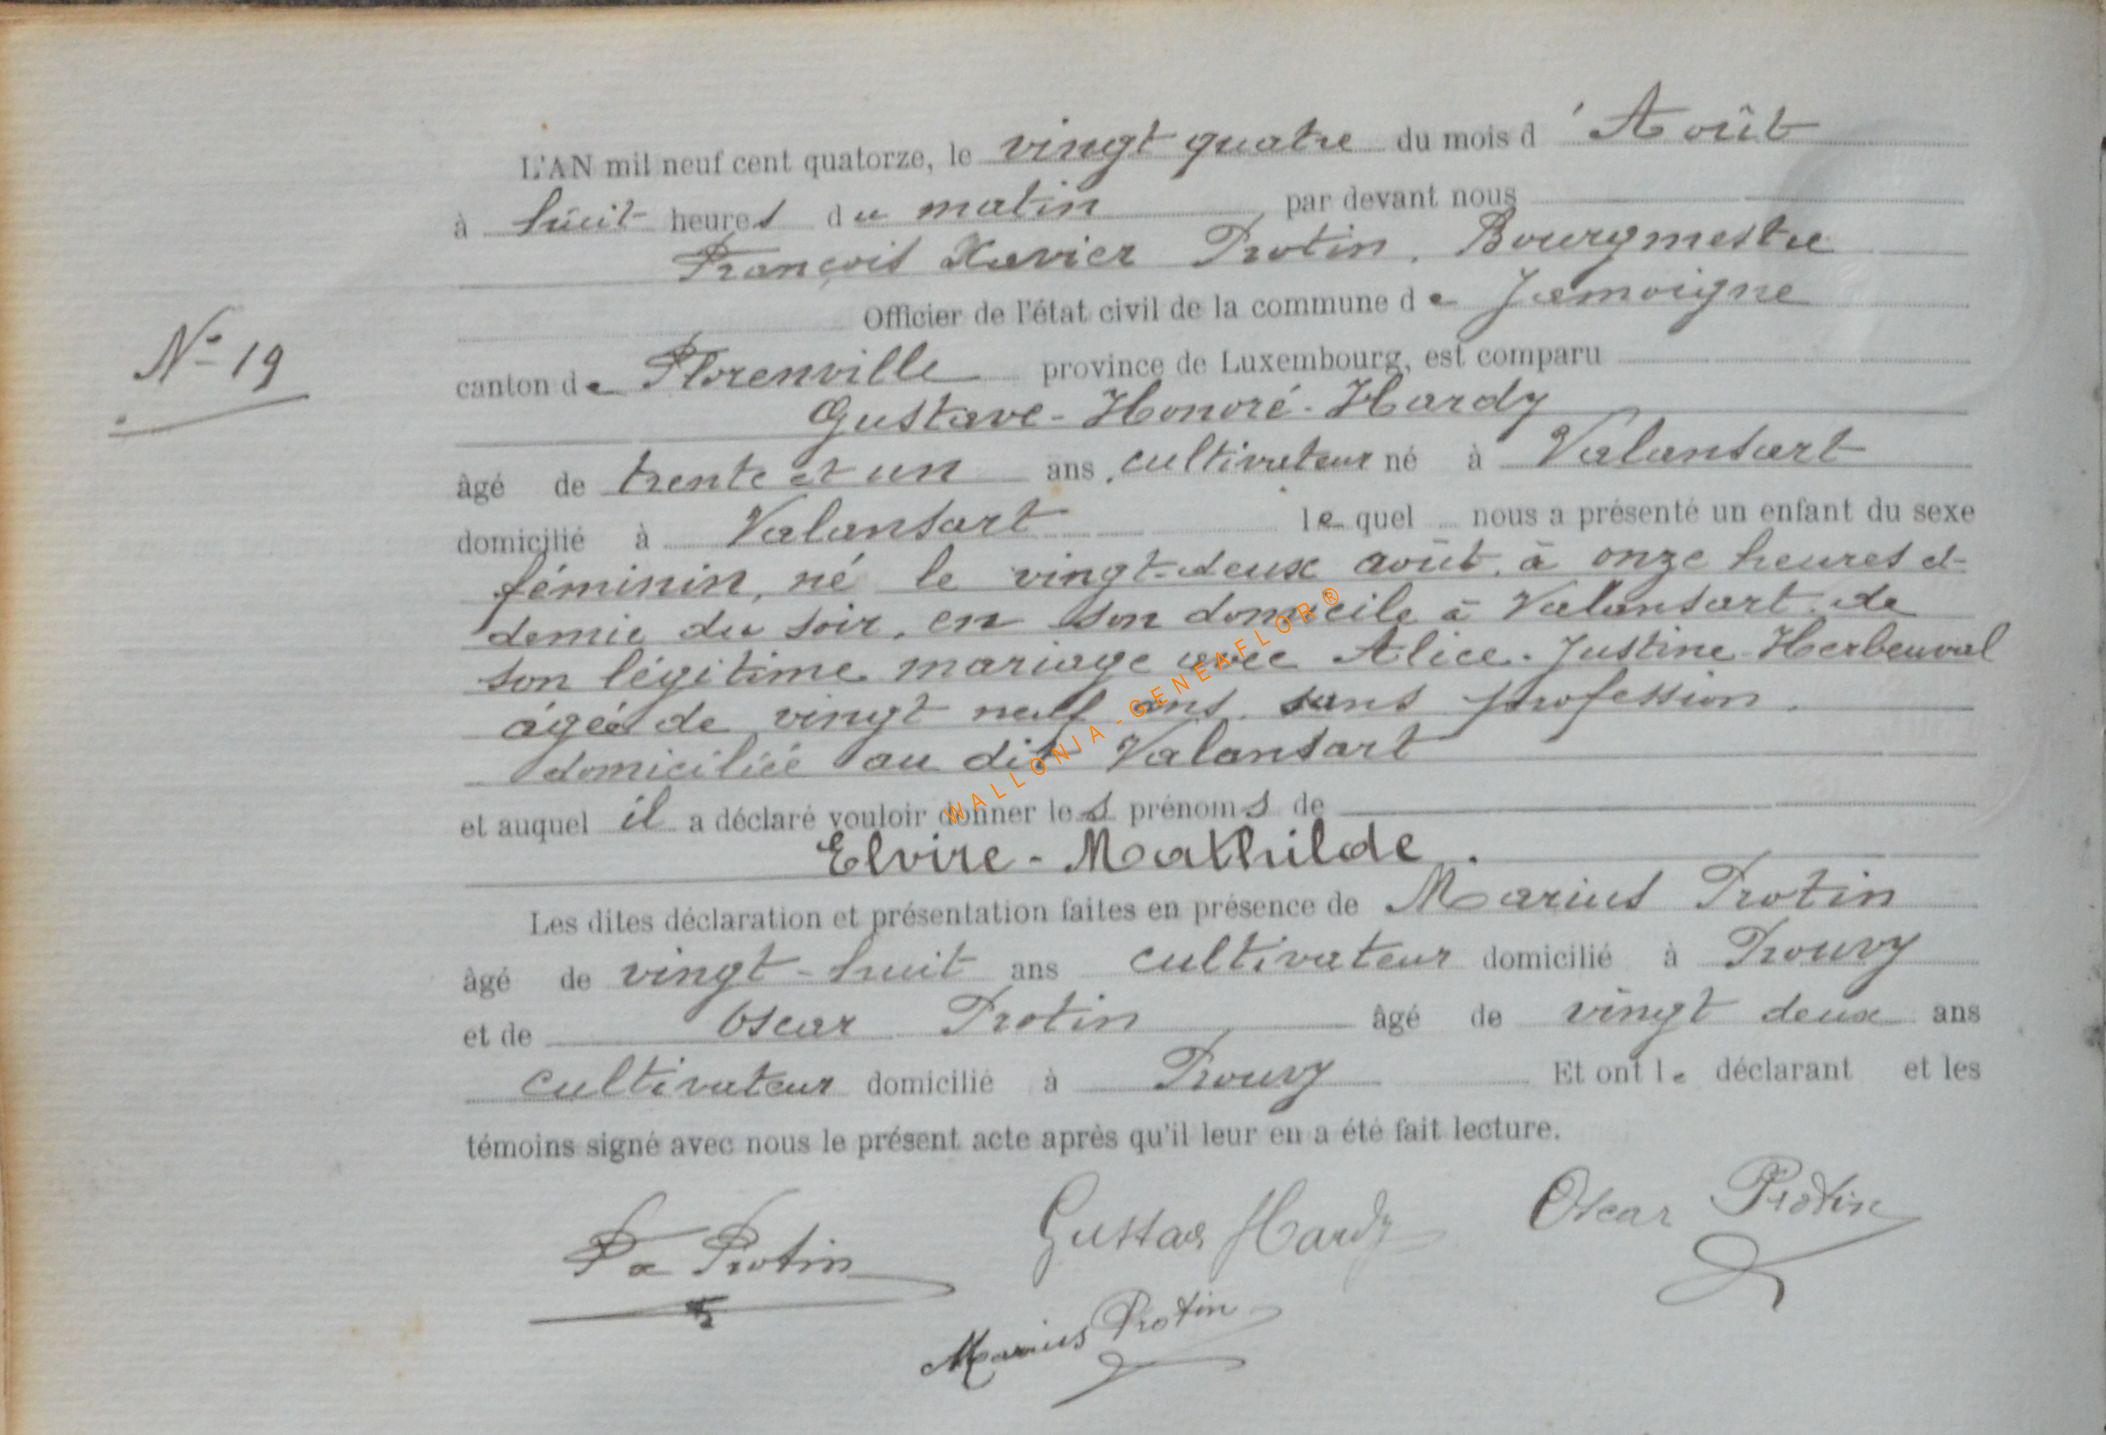 L'AN mil neuf cent quatorze, le vingt quatre du mois d'Août
à huit heures du matin par devant nous
François Xavier Protin, Bourgmestre
Officier de l'état civil de la commune de Jamoigne
N° 19
canton de Florenville province de Luxembourg, est comparu
Gustave-Honoré-Hardy
âgé de trente et un ans, cultivateur né à Valansart
domicilié à Valansart lequel nous a présenté un enfant du sexe
féminin, né le vingt-deux août, à onze heures et
demie du soir, en son domicile à Valansart, de
son légitime mariage avec Alice-Justine-Herbeuval
âgée de vingt neuf ans, sans profession,
domiciliée au dit Valansart
et auquel il a déclaré vouloir donner les prénoms de
Elvire-Mathilde.
Les dites déclaration et présentation faites en présence de Marius Protin
âgé de vingt-huit ans cultivateur domicilié à Prouvy
et de Oscar Protin âgé de vingt deux ans
cultivateur domicilié à Prouvy Et ont le déclarant et les
témoins signé avec nous le présent acte après qu'il leur en a été fait lecture.
Fx Protin Gustave Hardy Oscar Protin
Marius Protin
WALLONIA-GENEAFLOR®